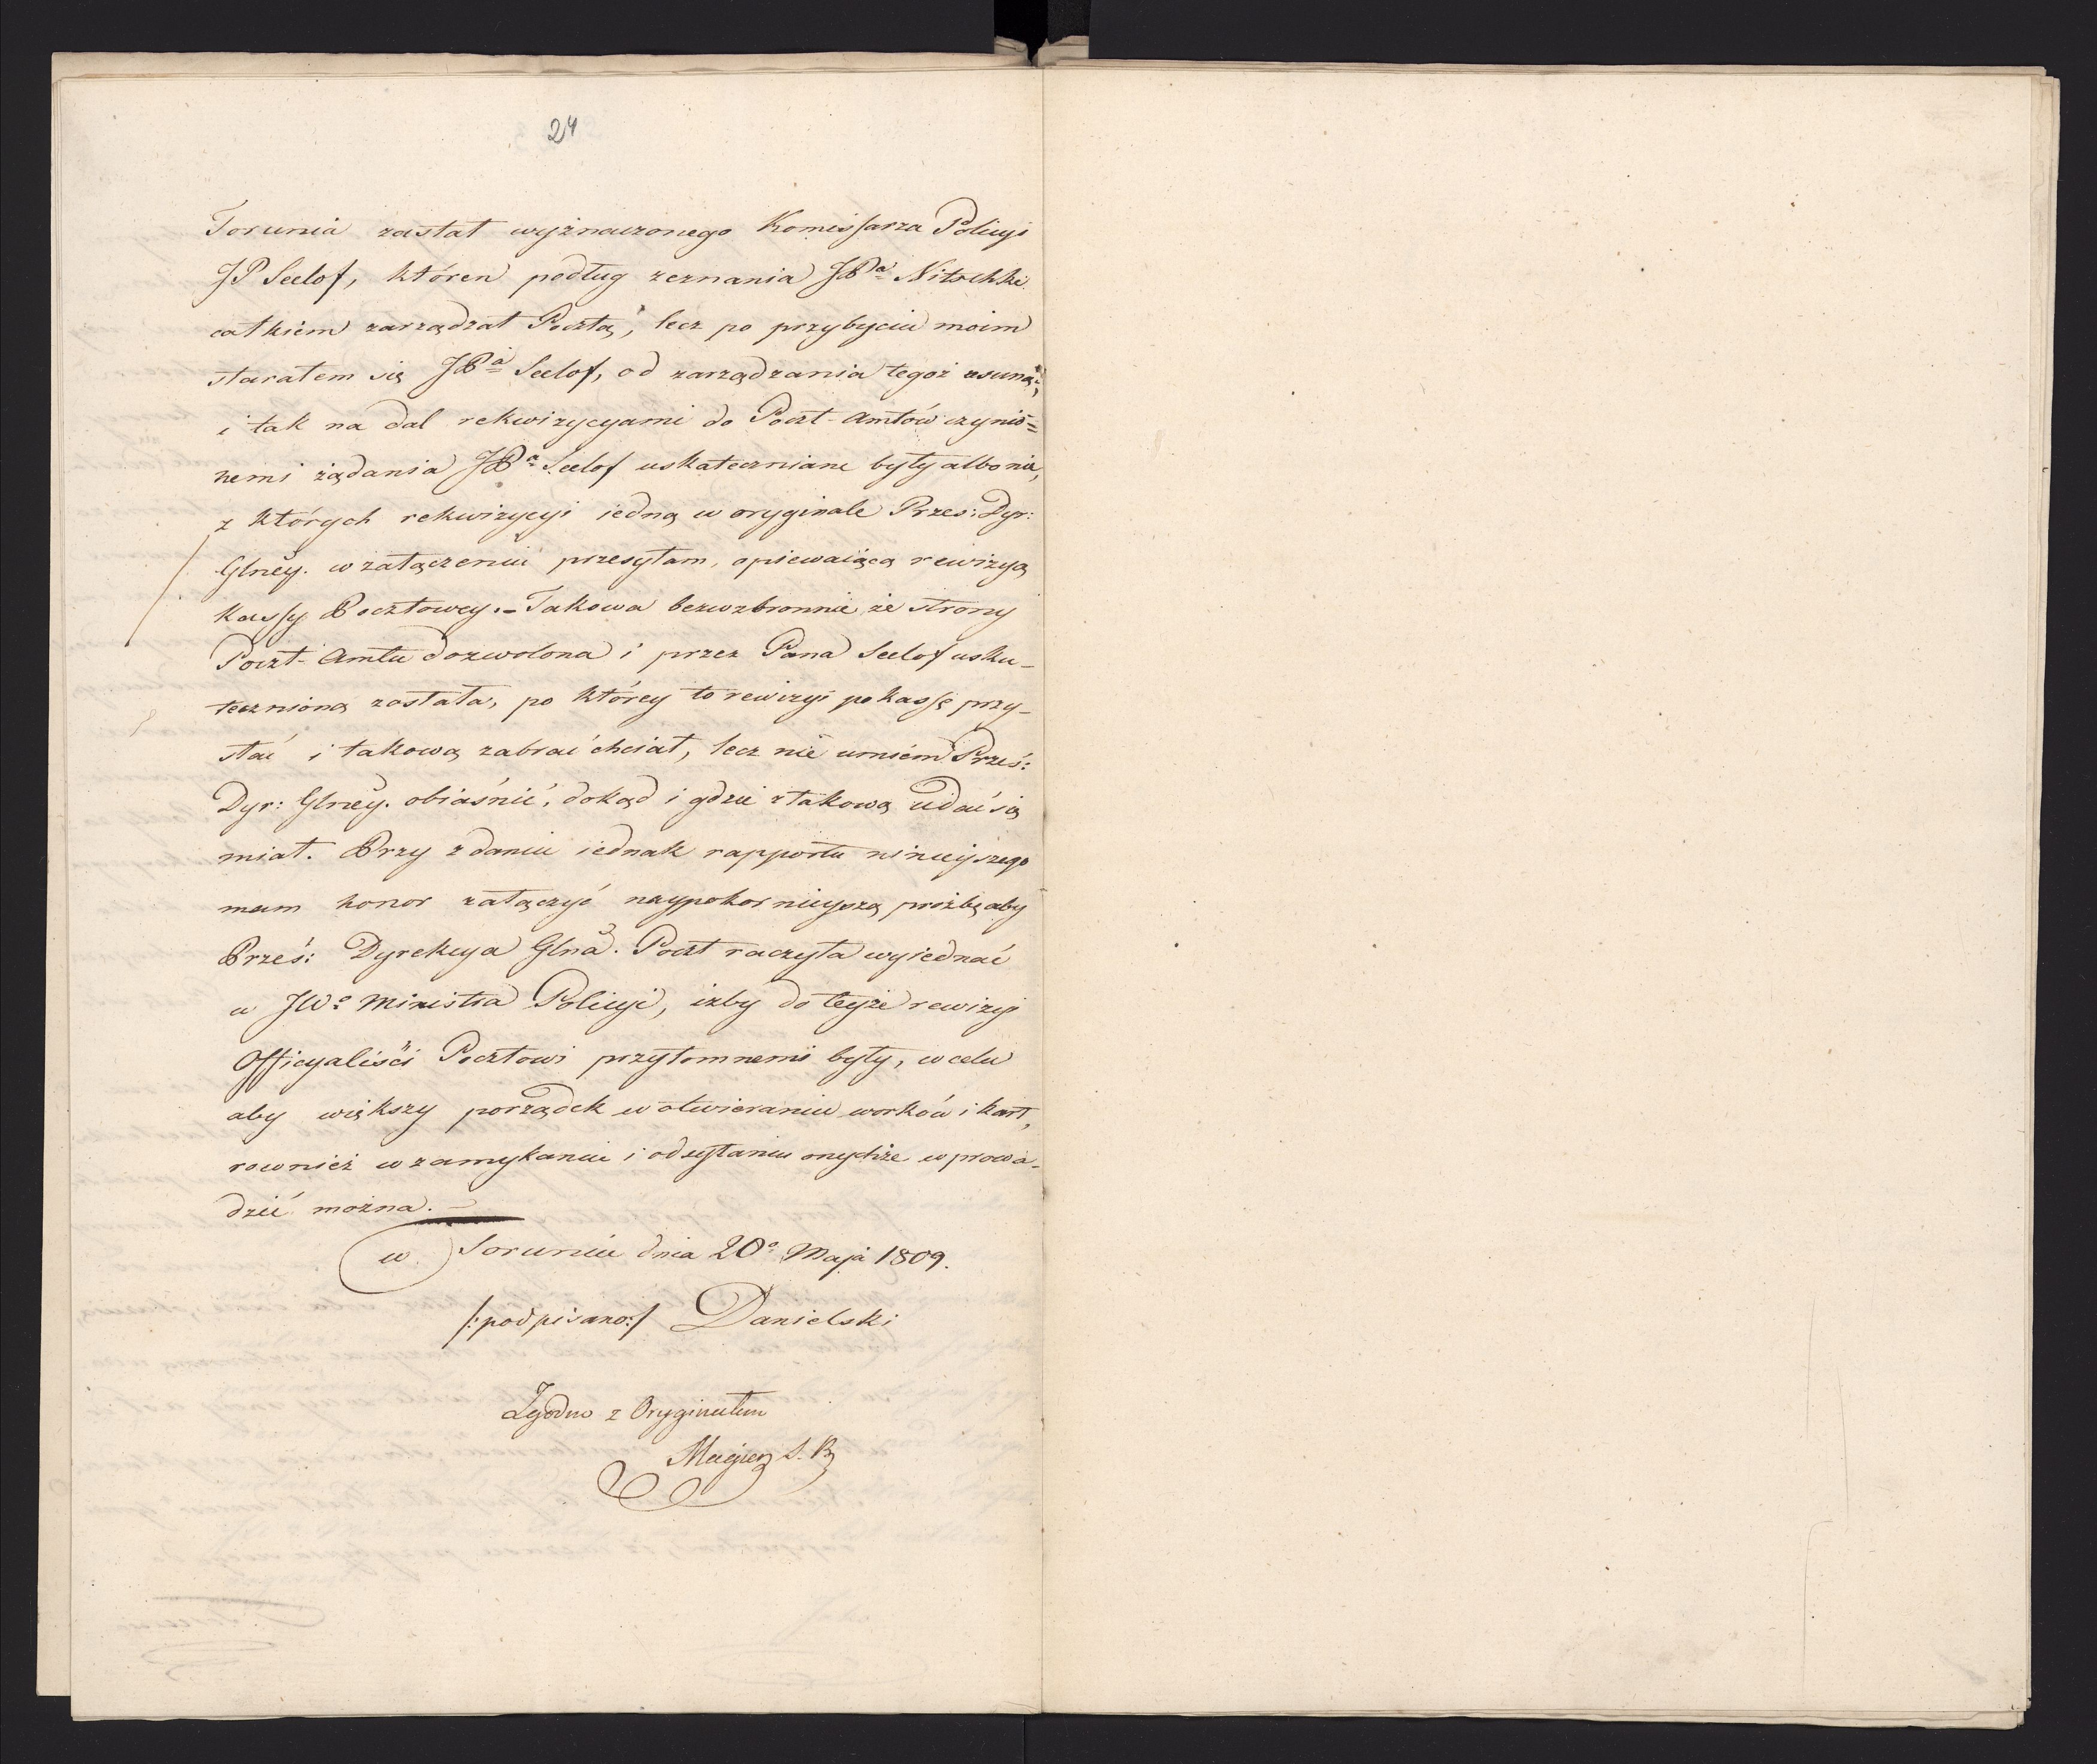 24
Torunia zastał wyznaczonego Komissarza Policyi
JP Seelof, któren podług zeznania JPa Nitschke
całkiem zarządzał Pocztą, lecz po przybyciu moim
starałem się JPa Seelof, od zarządzania tegoż usunąć,
i tak na dal rekwizycyami do Poczt-Amtów czynio=
nemi żądania JPa Seelof uskuteczniane były albo nie,
z których rekwizycyi iedną w oryginale Przes: Dyr:
Glney. w załączeniu przesyłam, opiewaiącą rewizyą
Kassy Pocztowey. – Takowa bezwzbronnie ze strony
Poczt-Amtu dozwolona i przez Pana Seelof usku-
teczniona została, po którey to rewizyi po kassę przy-
słać i takową zabrać chciał, lecz nie umiem Prześ:
Dyr: Glney. obiaśnić, dokąd i gdzie z takową udać się
miał. Przy zdaniu iednak rapportu ninieyszego
mam honor załączyć naypokornieyszą prożbę aby
Prześ: Dyrekcya Glna. Poczt raczyła wyiednać
u JWo Ministra Policyi, iżby do teyże rewizyi
Officyaliści Pocztowi przytomnemi były, w celu
aby większy porządek w otwieraniu worków i kart,
rownież w zamykaniu i odsyłaniu onychże wprowa-
dzić można. –
w Toruniu dnia 20o Maja 1809.
/:podpisano:/ Danielski
Zgodno z Oryginałem
Magier S. P.